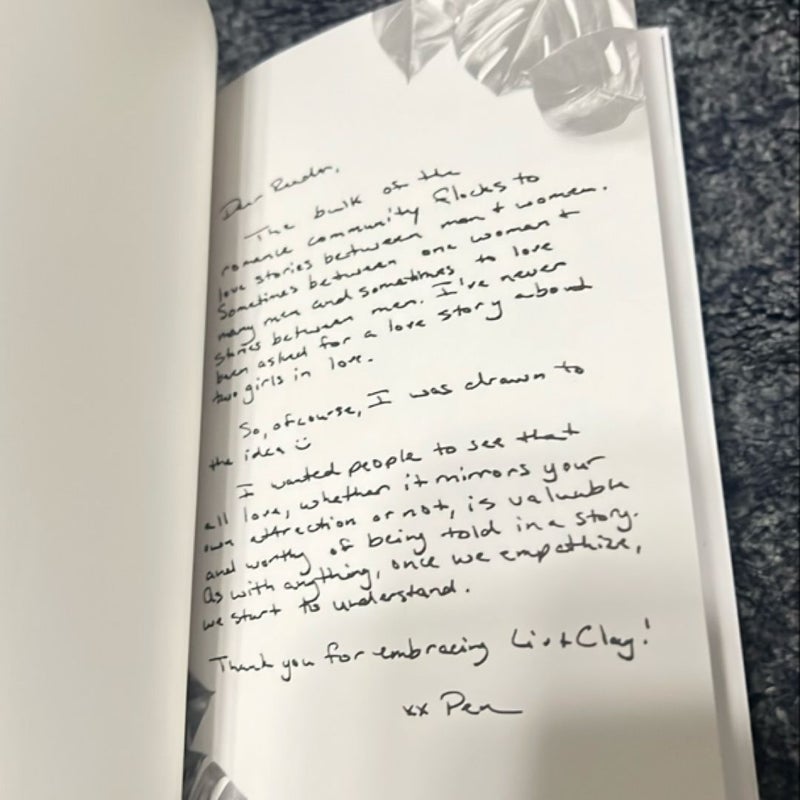 Dear Reader,
The bulk of the
romance community flocks to
love stories between men + women.
Sometimes between one woman +
many men and sometimes to love
stories between men. I've never
been asked for a love story about
two girls in love.
So, ofcourse, I was drawn to
the idea :)
I wanted people to see that
all love, whether it mirrors your
own attraction or not, is valuable
and worthy of being told in a story.
As with anything, once we empathize,
we start to understand.
Thank you for embracing Liv + Clay!
xx Pen